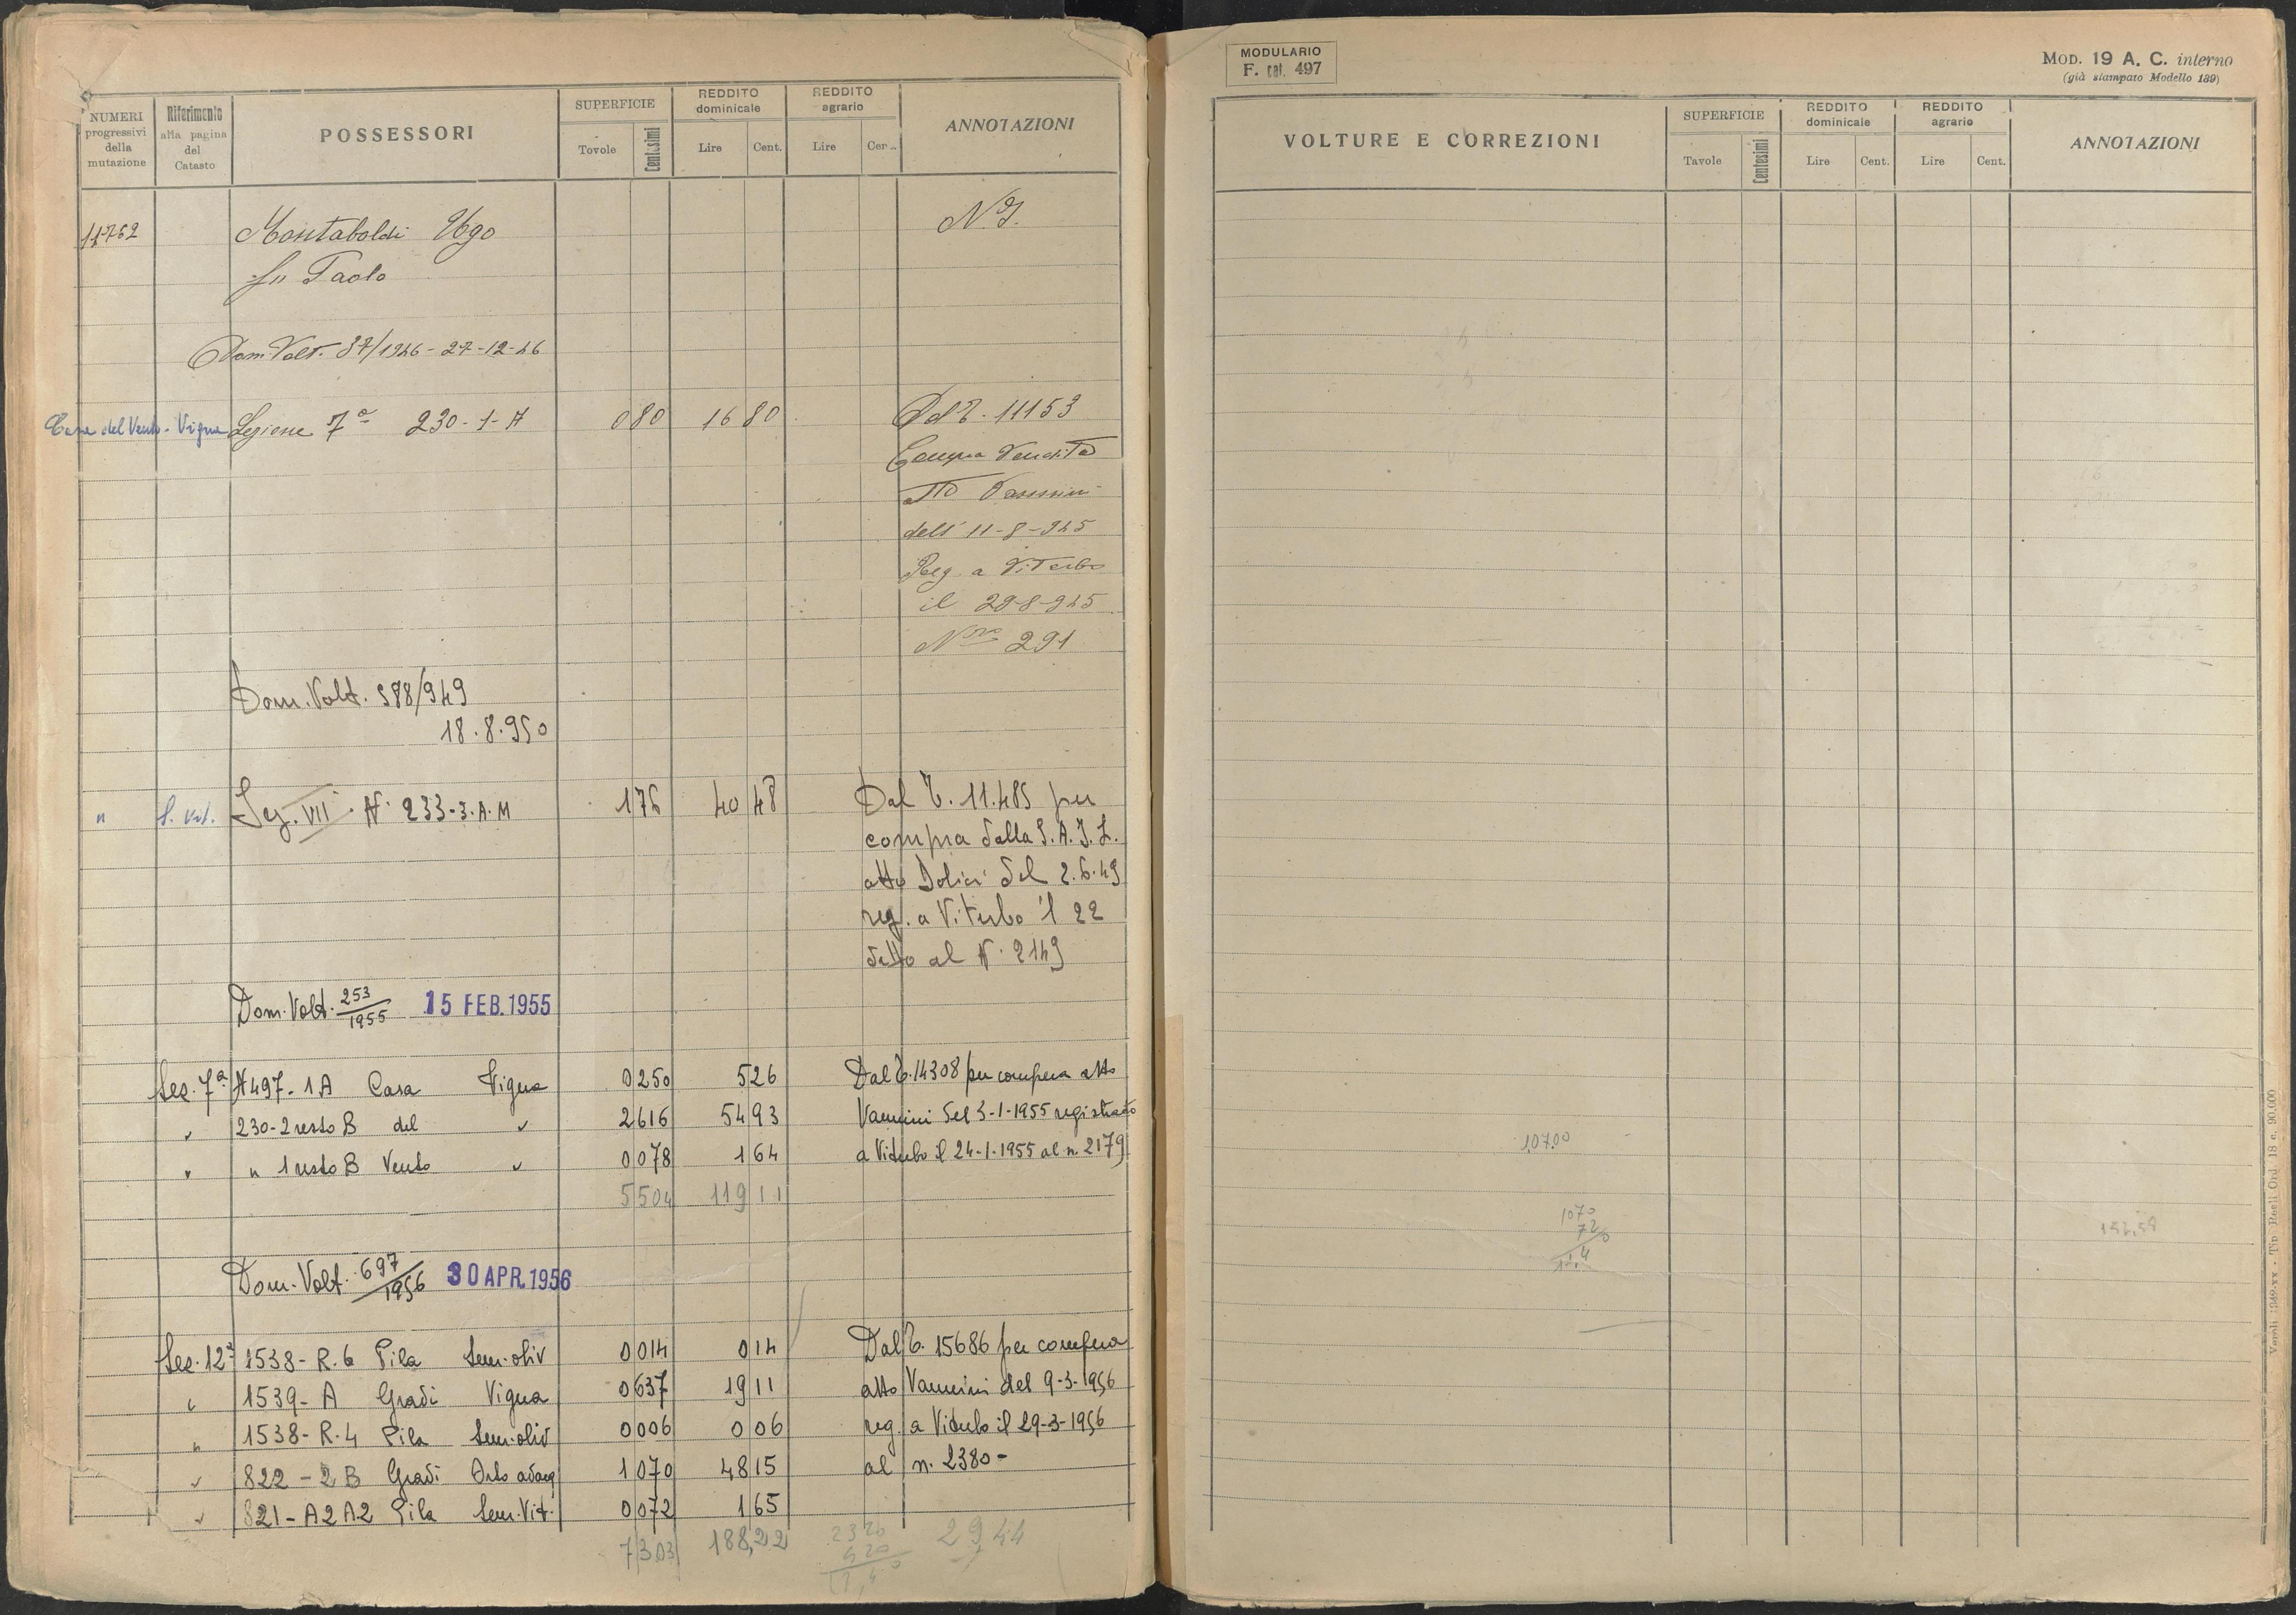 NUMERI progressivi della mutazione
Riferimento alla pagina del Catasto
POSSESSORI
SUPERFICIE
Tovole
Centesimi
REDDITO dominicale
Lire
Cent.
REDDITO agrario
Lire
ANNOTAZIONI
11762 Montaboldi Ugo
N.I.
fu Paolo
Dom. Volt. 37/1946 - 27-12-46
Case del Vento - Vigna Sezione 7ª 230-1-A 0 80 16 80 Dal T. 11153
Compra Vendita
atto Vannini
dell' 11-8-945
Reg. a Viterbo
il 29-8-945
Nro 291
Dom. Volt. 588/949
18.8.950
" S. Vit. Sez. VII N. 233-3.A.M 1 76 40 48 Dal T. 11.485 per
compra dalla S.A.I.L.
atto Dolci del 2.6.49
reg. a Viterbo il 22
detto al N. 2149
Dom. Volt. 253/1955 15 FEB. 1955
Sez. 7ª N 497-1A Casa Vigna 0 250 5 26 Dal T. 14308 per compera atto
" 230-2 resto B del " 2 616 54 93 Vannini del 3-1-1955 registrato
" " 1 resto B Vento " 0 078 1 64 a Viterbo il 24-1-1955 al n. 2179
5 504 119 11
Dom. Volt. 697/1956 30 APR. 1956
Sez. 12ª 1538-R.6 Pila Sem. oliv 0 014 0 14 Dal T. 15686 per compera
" 1539-A Gradi Vigna 0 637 19 11 atto Vannini del 9-3-1956
" 1538-R.4 Pila Sem. oliv 0 006 0 06 reg. a Viterbo il 29-3-1956
" 822-2B Gradi Orto adacq 1 070 48 15 al n. 2380-
" 821-A2A2 Pila Sem. Vit. 0 072 1 65
7 303 188,22
29,44
MODULARIO
F. cat. 497
MOD. 19 A. C. interno
(già stampato Modello 189)
VOLTURE E CORREZIONI
SUPERFICIE
Tavole
Centesimi
REDDITO dominicale
Lire
Cent.
REDDITO agrario
Lire
Cent.
ANNOTAZIONI
10700
1070
72